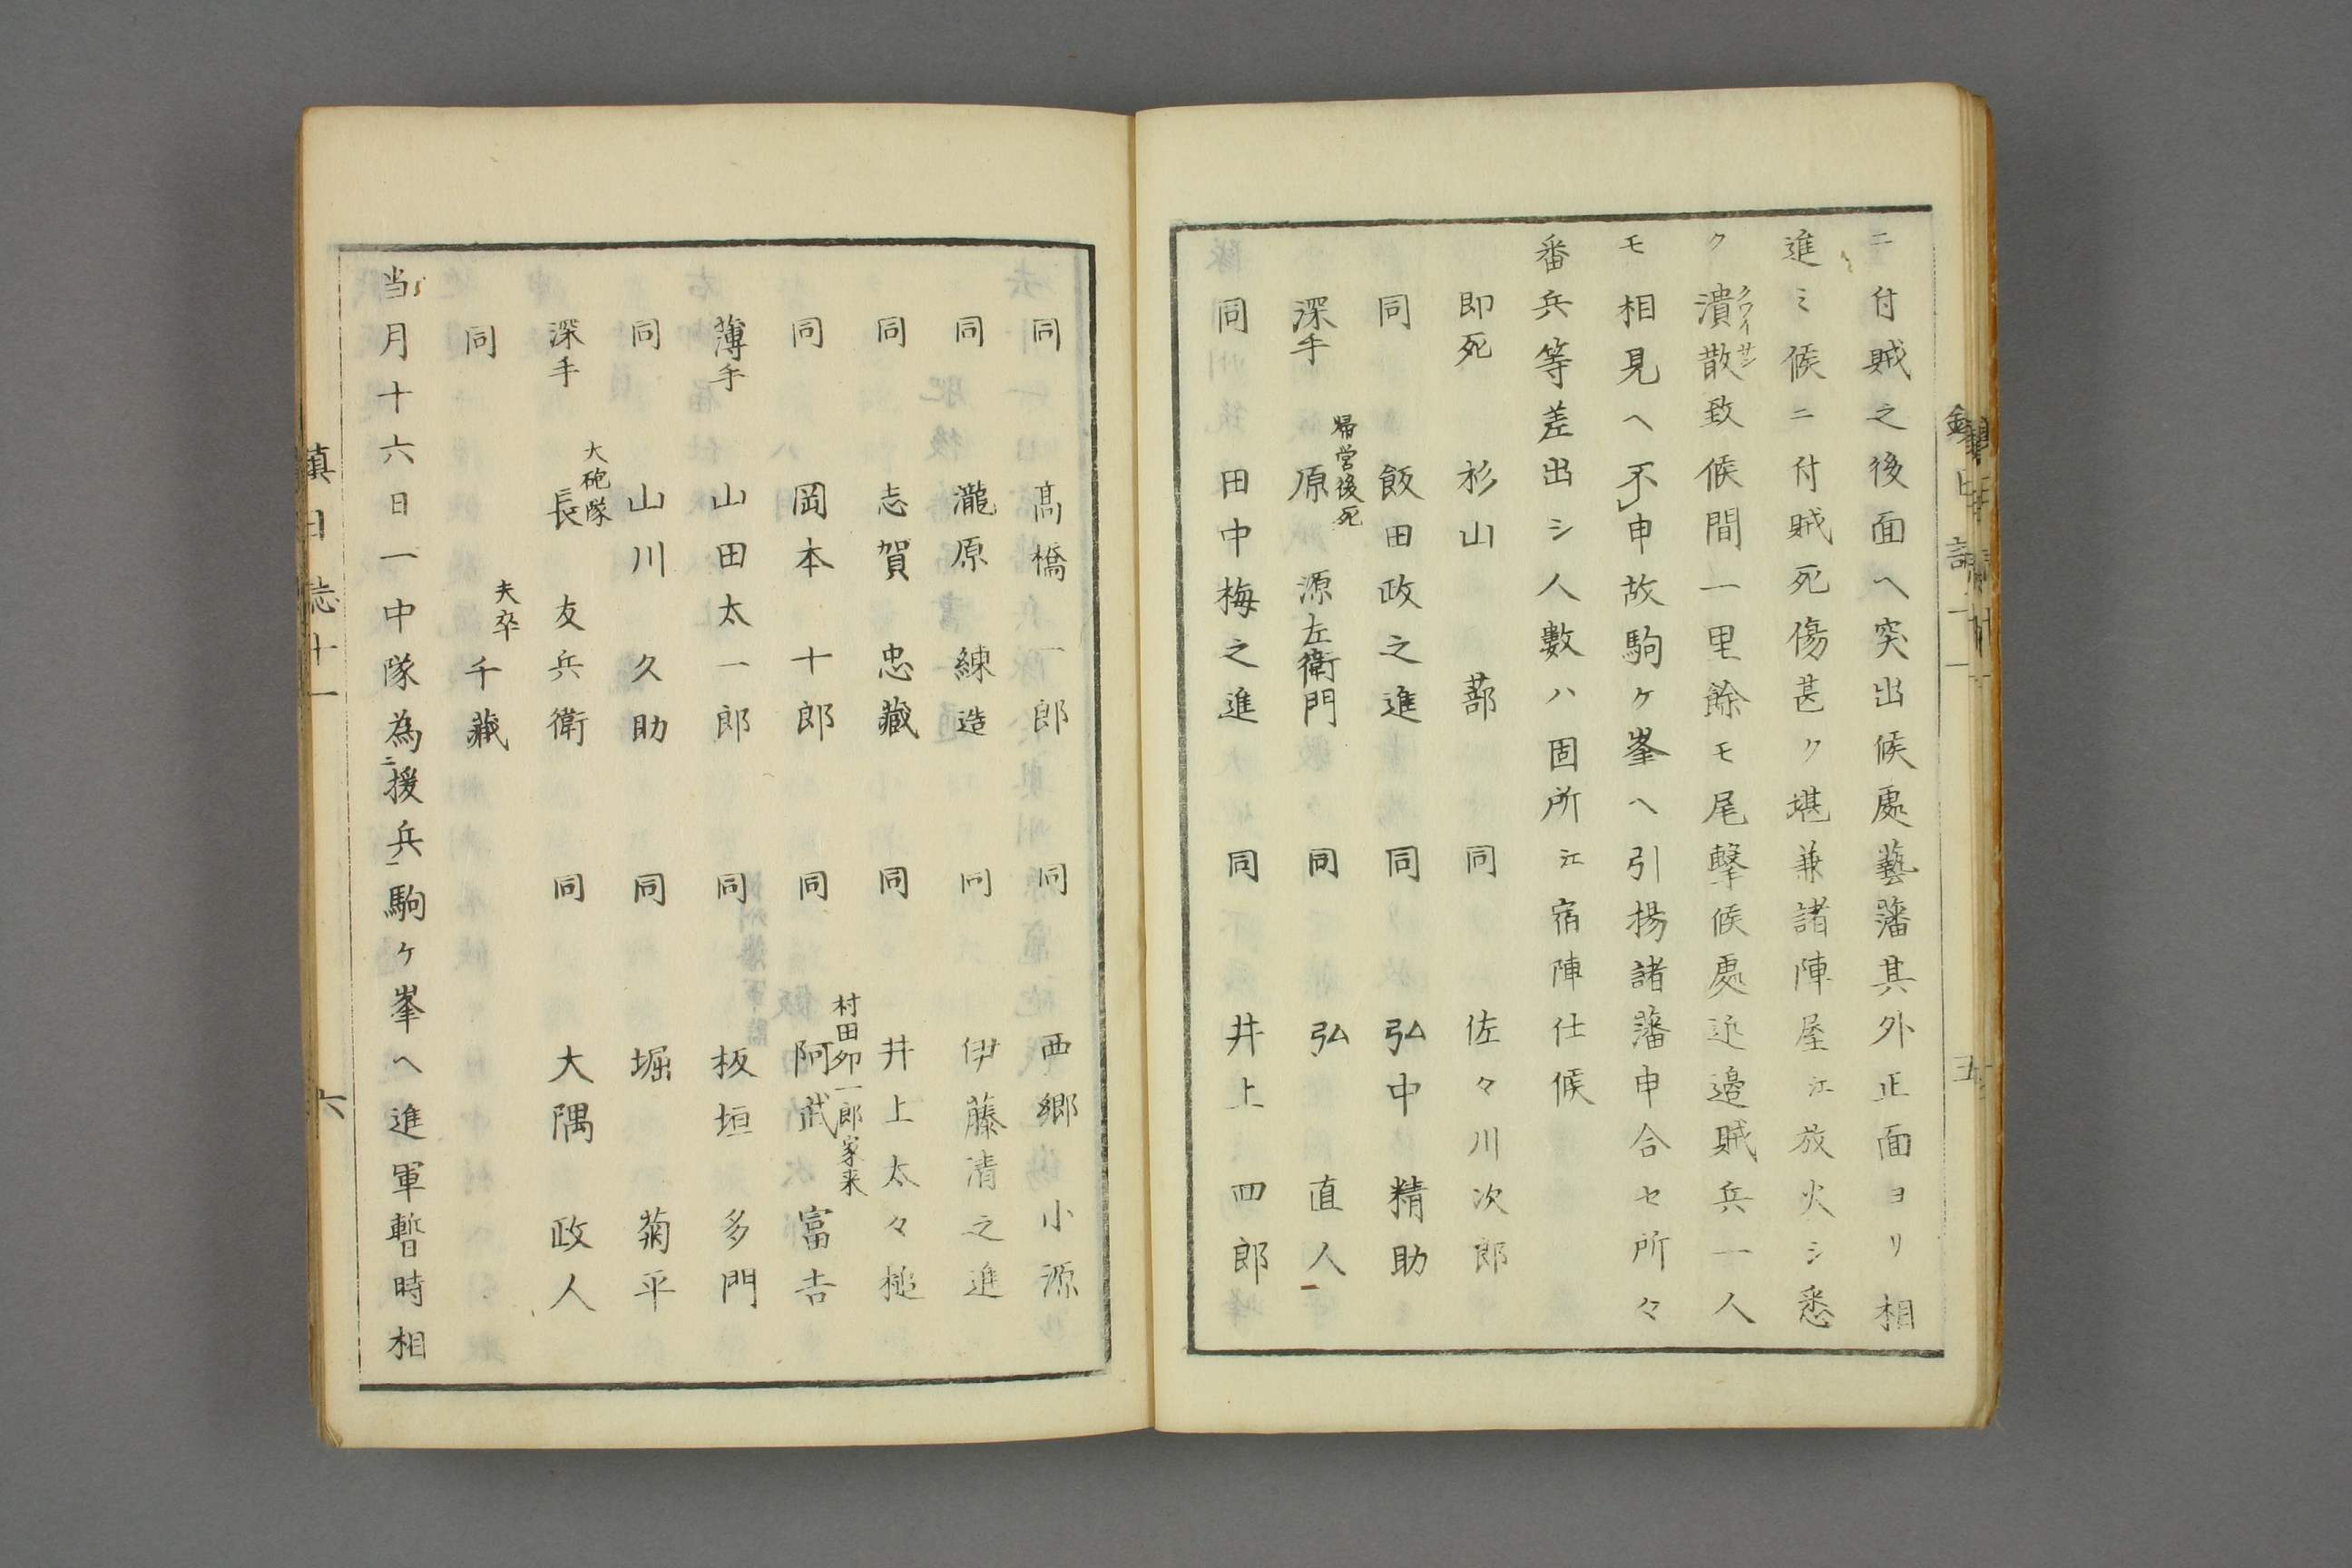 ニ付賊之後面ヘ突出候處藝藩其外正面ヨリ相
進ミ候ニ付賊死傷甚ク堪兼諸陣屋江放火シ悉
ク潰散致候間一里餘モ尾擊候處近邊賊兵一人
クワイサン
モ相見ヘ不申故駒ケ峯ヘ引揚諸藩申合セ所々
番兵等差出シ人數ハ固所江宿陣仕候
即死 杉山 蔀 同 佐々川次郎
同 飯田政之進 同 弘中 精助
帰営後死
深手 原 源左衛門 同 弘 直人
同 田中梅之進 同 井上 四郎
五
同 髙橋 一郎 同 西郷 小源
同 瀧原 練造 同 伊藤清之進
同 志賀 忠藏 同 井上太々槌
村田卯一郎家来
同 岡本 十郎 同 阿武 富吉
薄手 山田太一郎 同 板垣 多門
同 山川 久助 同 堀 菊平
大砲隊
深手 長 友兵衛 同 大隅 政人
夫卒
同 千藏
当月十六日一中隊為ニ援兵一駒ケ峯ヘ進軍暫時相
鎮日誌十一
六